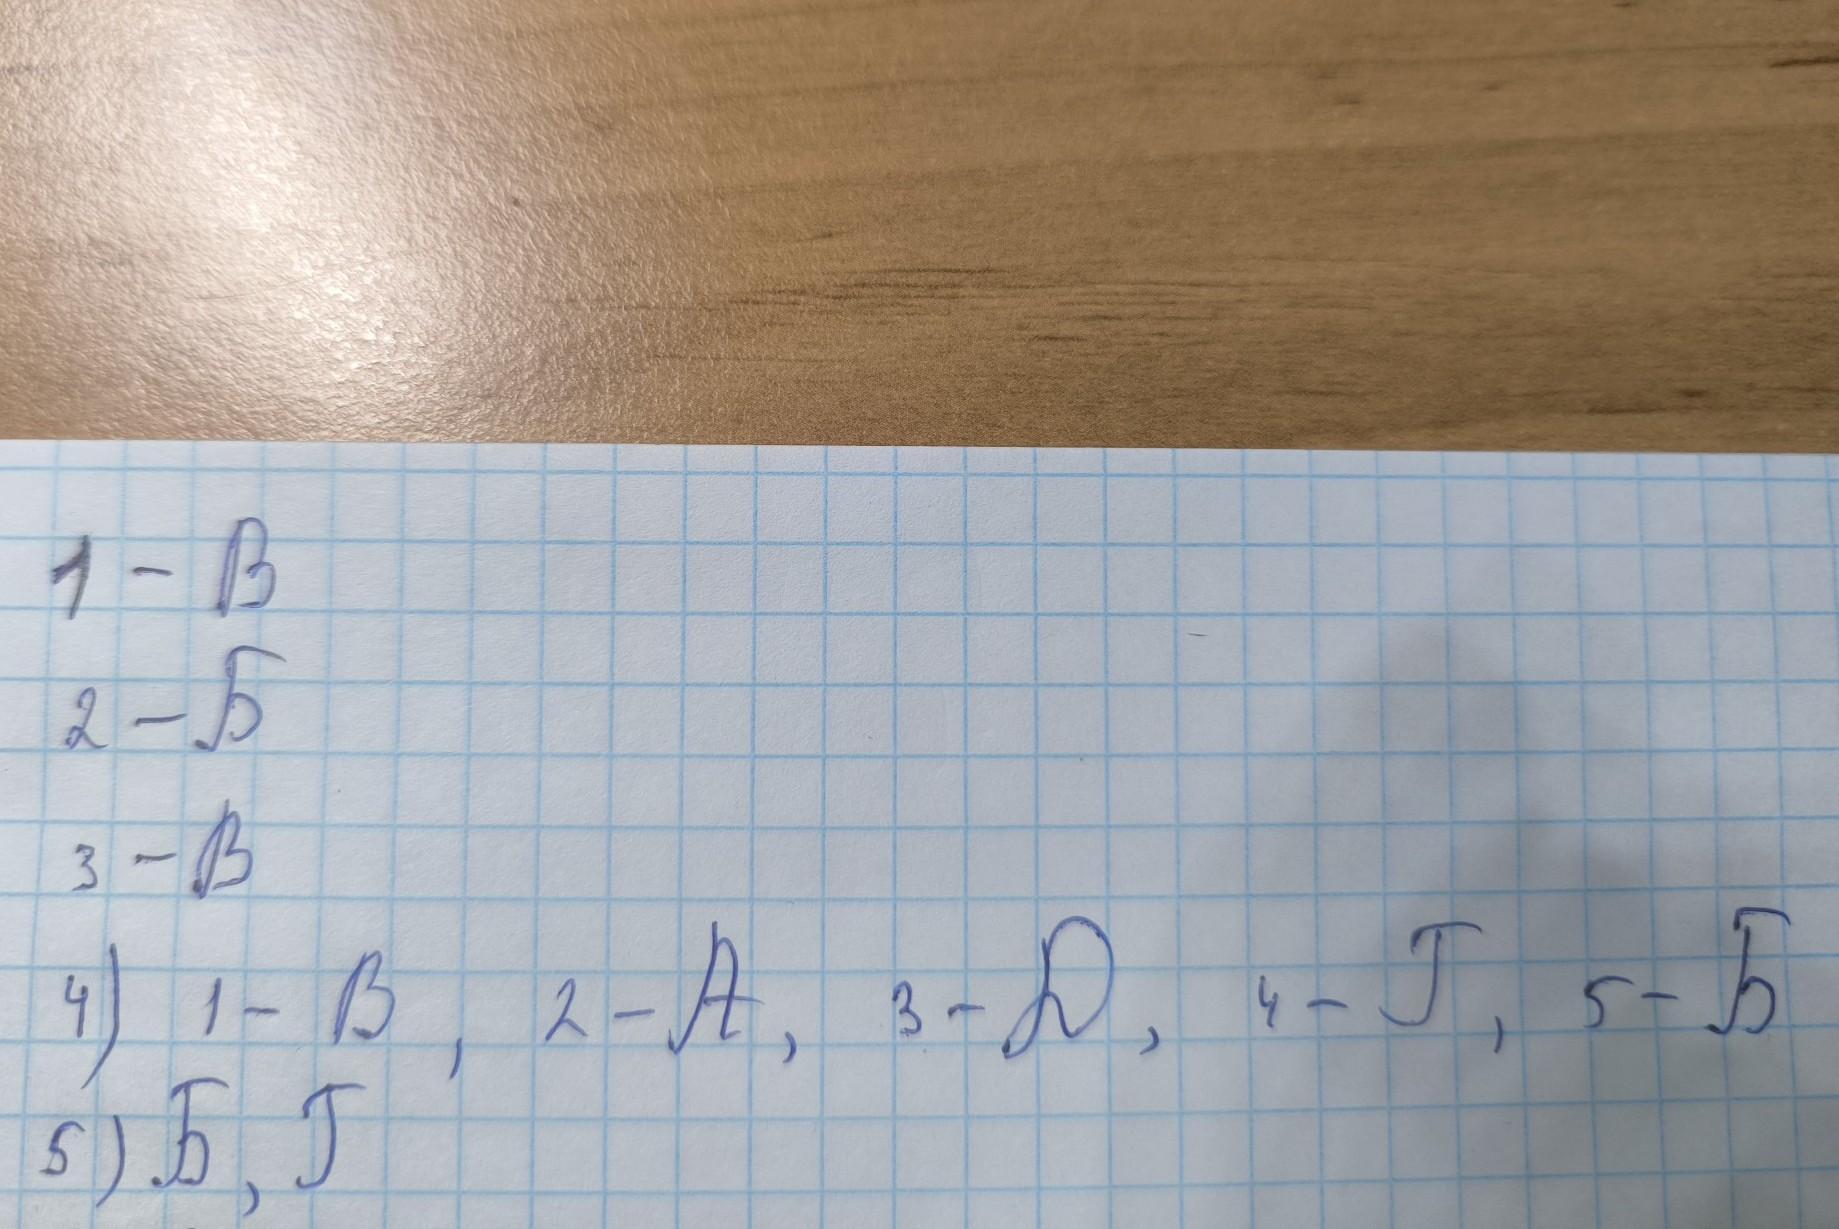 1 - В
2 - Б
3 - В
4) 1 - В, 2 - А, 3 - Д, 4 - Г, 5 - Б
5) Б, Г